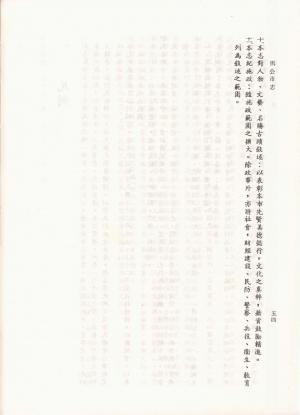 馬公市志
十、本志對人物、文藝、名勝古蹟敘述:以表彰本市先賢美德懿行,文化之真粹,藉資鼓勵精進。
十一、本志紀施政:隨施政範圍之擴大。除政事外,亦將社會,財經建設、民防、警察、兵役、衛生、教育
列為敘述之範圍。
五四